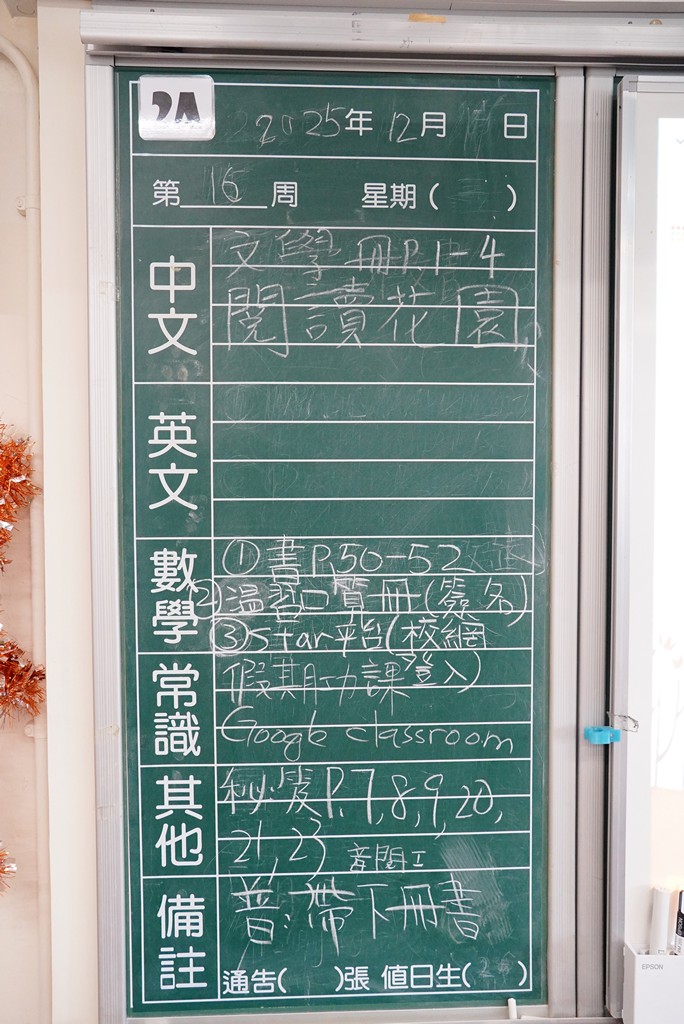 2A
2025年12月 日
第16周 星期( )
中文
文學冊P.1-4
閱讀花園
英文
數學
①書P.50-52
②溫習口算冊(簽名)
③star平台(校網
登入)
常識
假期功課
Google classroom
其他
P.7,8,9,20,
21,23
備註
普:帶下冊書
通告( )張 值日生( )
EPSON